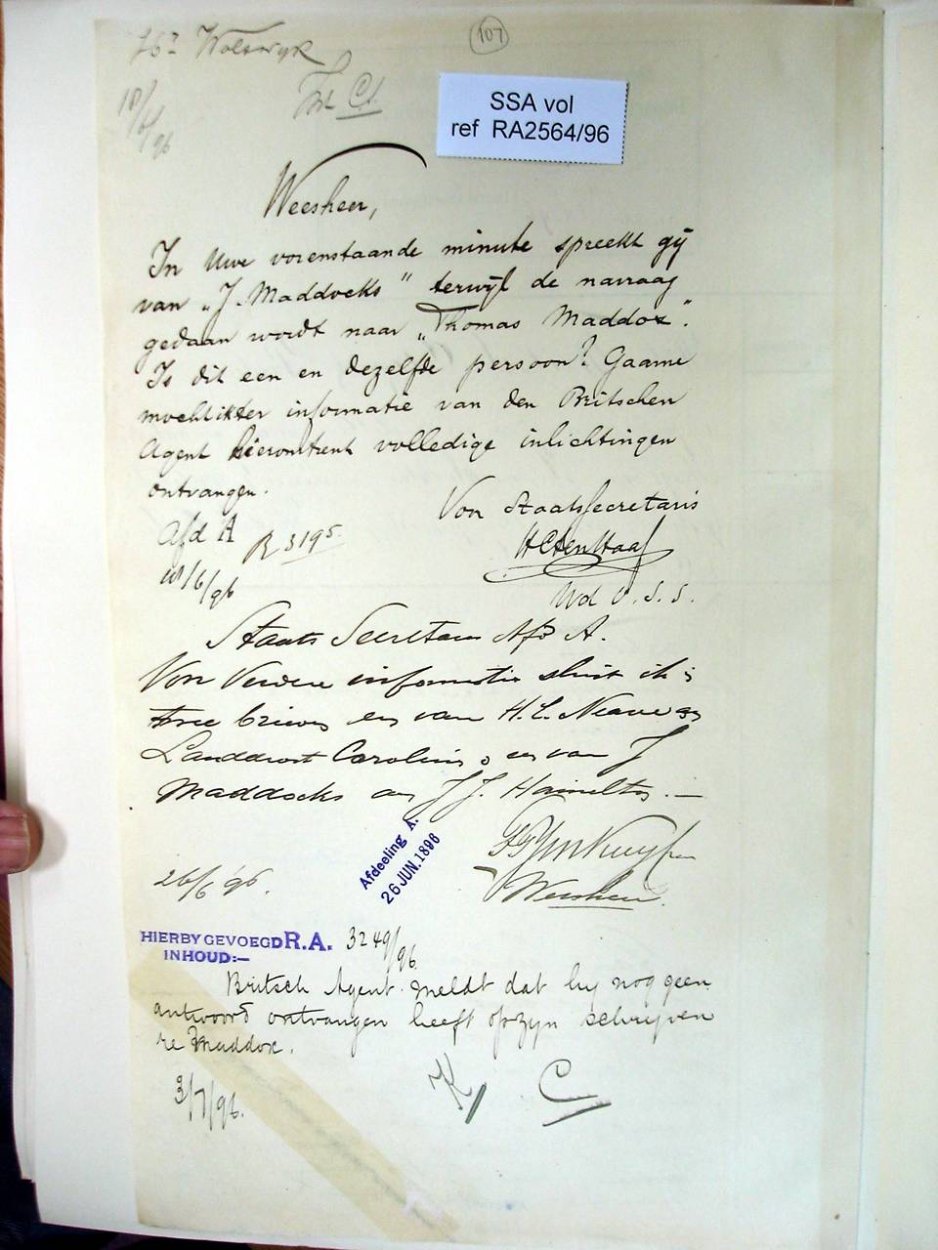 107
Wolswyk
18/6/96
SSA vol
ref RA2564/96
Weesheer,
In Uwe vorenstaande minute spreekt gij
van „J. Maddocks" terwijl de navraag
gedaan wordt naar „Thomas Maddox".
Is dit een en dezelfde persoon? Gaarne
informatie van den Britschen
Agent hieromtrent volledige inlichtingen
ontvangen.
Voor Staatssecretaris
Afd A
R 3195
18/6/96
Wd O.S.S.
Staats Secretaris Afd A.
Voor verdere informatie sluit ik
twee brieven een van H.L. Neave
Landdrost Carolina & een van J
Maddocks J J. Hamilton.—
Afdeeling A.
26 JUN. 1896
26/6/96.
Weesheer.
HIERBY GEVOEGD R.A. 3249/96
INHOUD:—
Britsch Agent meldt dat hy nog geen
antwoord ontvangen heeft op zyn schrijven
re Maddox.
3/7/96.
K/ C/